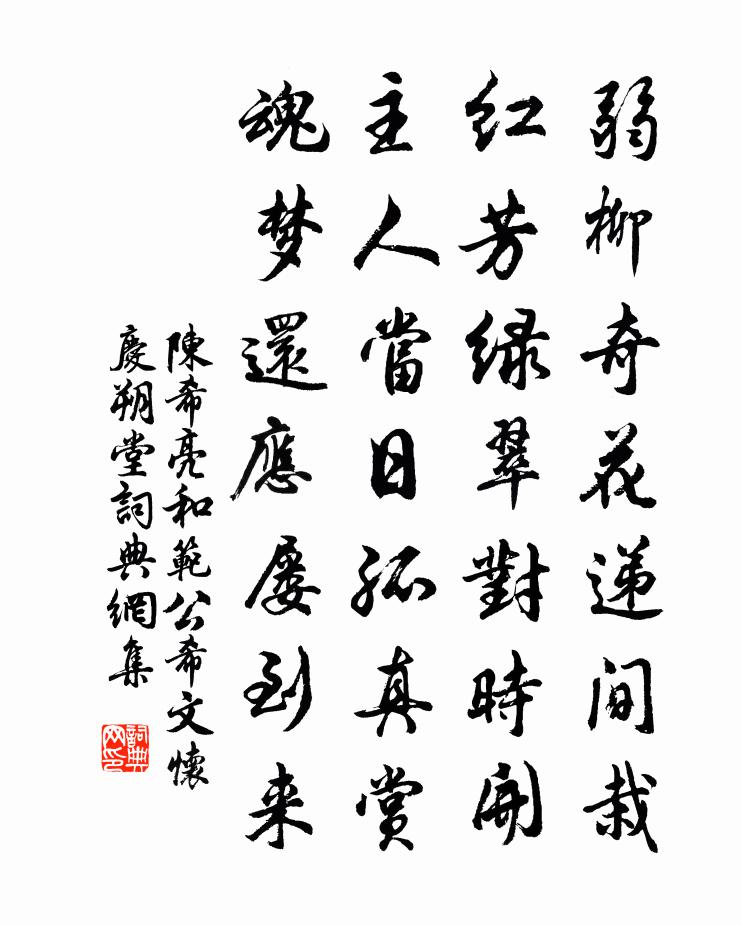 弱柳奇花递间栽
红芳绿翠對時開
主人當日孤真赏
魂梦還應屡到来
陳希亮和範公希文懷
慶朔堂詞典網集
詞典网印